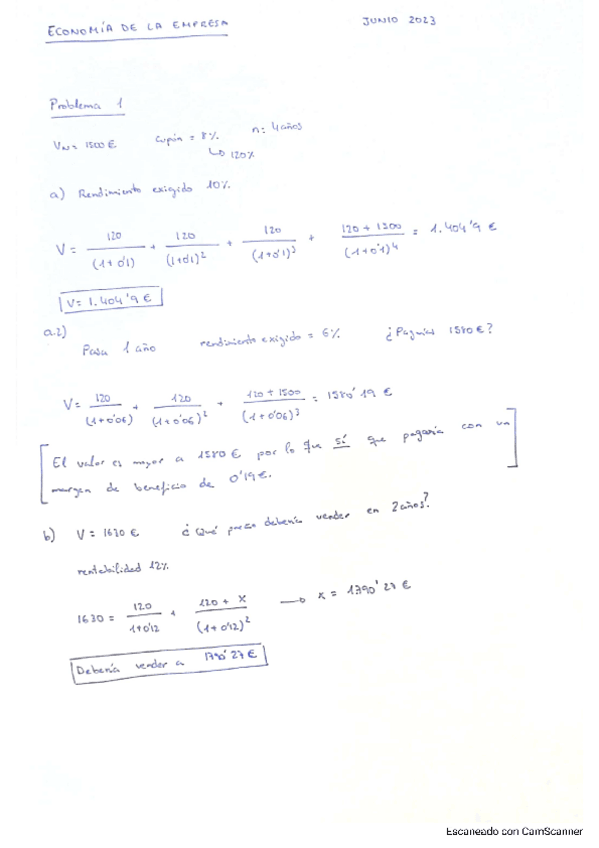 ECONOMÍA DE LA EMPRESA JUNIO 2023
Problema 1
VN = 1500 € cupón = 8% n: 4 años
↳ 120%
a) Rendimiento exigido 10%.
V = 120/(1+0'1) + 120/(1+0'1)² + 120/(1+0'1)³ + 120 + 1500/(1+0'1)⁴ = 1.404'9 €
V = 1.404'9 €
a.2)
Pasa 1 año rendimiento exigido = 6% ¿Pagarías 1580 €?
V = 120/(1+0'06) + 120/(1+0'06)² + 120 + 1500/(1+0'06)³ = 1580'19 €
El valor es mayor a 1580 € por lo que sí que pagaría con un
margen de beneficio de 0'19 €.
b) V = 1630 € ¿Qué precio debería vender en 2 años?
rentabilidad 12%
1630 = 120/1+0'12 + 120 + X/(1+0'12)² → x = 1790'27 €
Debería vender a 1790'27 €
Escaneado con CamScanner